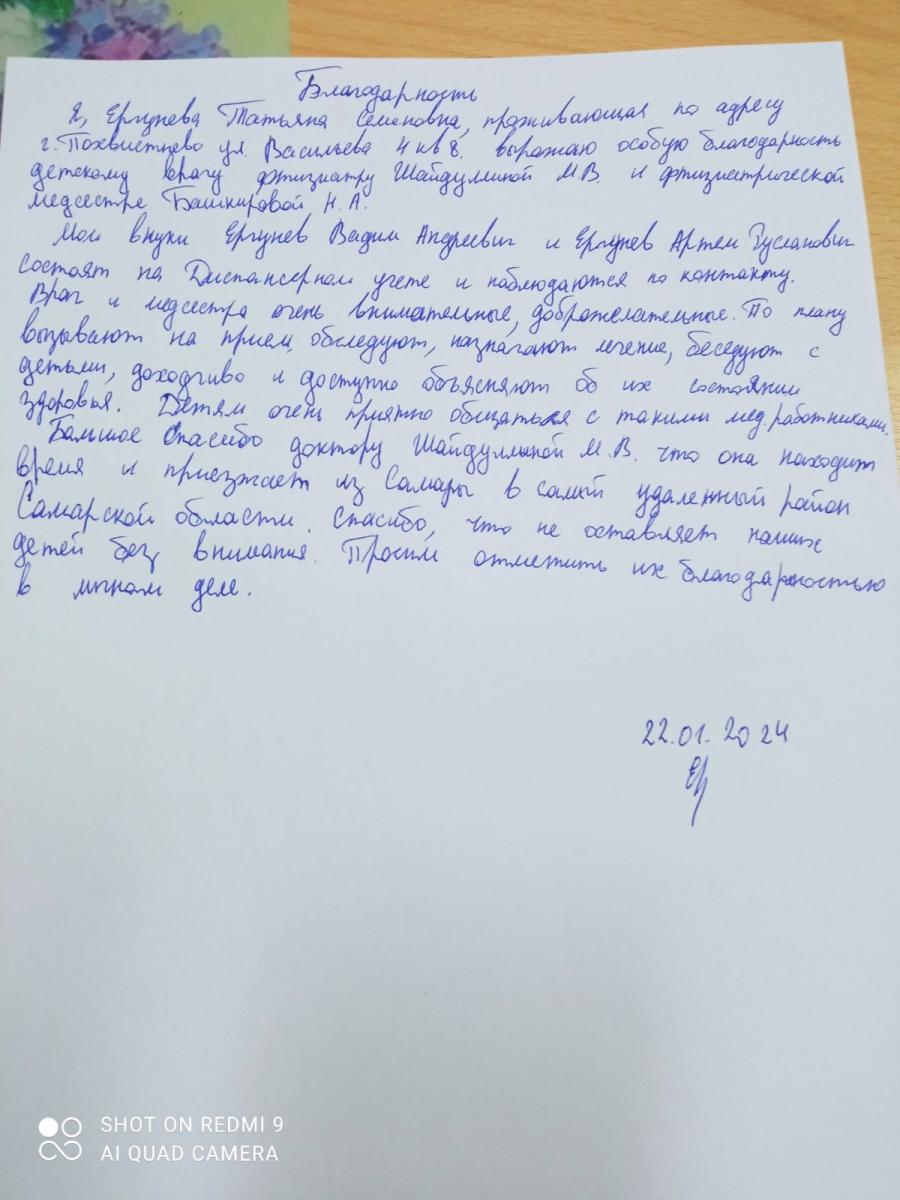 Благодарность
Я, Ергунева Татьяна Семеновна, проживающая по адресу
г. Похвистнево ул. Васильева 4 кв 8. выражаю особую благодарность
детскому врачу фтизиатру Шайдуллиной М.В. и фтизиатрической
медсестре Башкировой Н.А.
Мои внуки Ергунев Вадим Андреевич и Ергунев Артем Русланович
состоят на Диспансерном учете и наблюдаются по контакту.
Врач и медсестра очень внимательные, доброжелательные. По плану
вызывают на прием, обследуют, назначают лечение, беседуют с
детьми, доходчиво и доступно объясняют об их состоянии
здоровья. Детям очень приятно общаться с такими мед. работниками.
Большое Спасибо доктору Шайдуллиной М.В. что она находит
время и приезжает из Самары в самый удаленный район
Самарской области. Спасибо, что не оставляет наших
детей без внимания. Просим отметить их благодарностью
в личном деле.
22.01.2024
SHOT ON REDMI 9
AI QUAD CAMERA